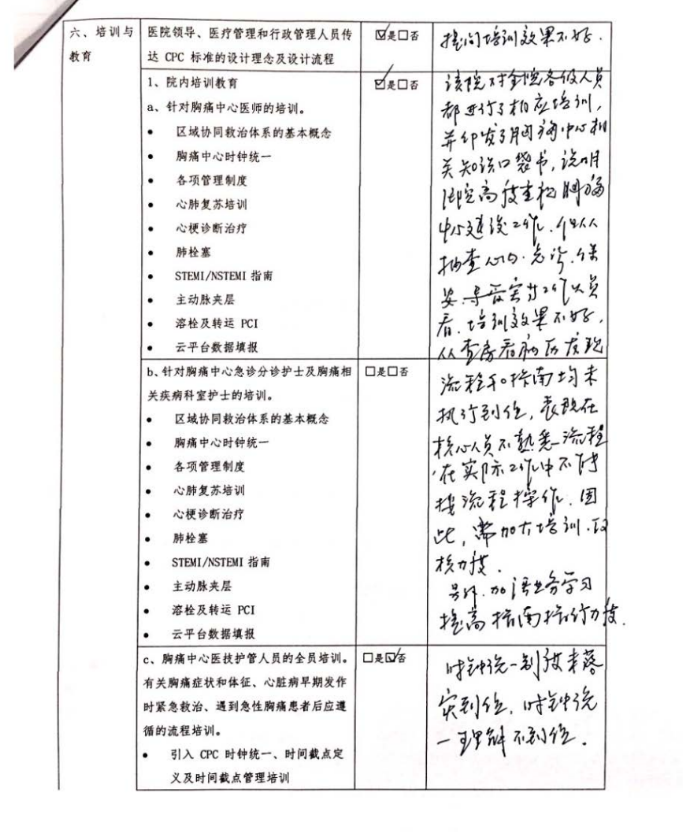 六、培训与
教育
医院领导、医疗管理和行政管理人员传
达 CPC 标准的设计理念及设计流程
☑是□否
提问培训效果不好.
1、院内培训教育
☑是□否
a、针对胸痛中心医师的培训。
• 区域协同救治体系的基本概念
• 胸痛中心时钟统一
• 各项管理制度
• 心肺复苏培训
• 心梗诊断治疗
• 肺栓塞
• STEMI/NSTEMI 指南
• 主动脉夹层
• 溶栓及转运 PCI
• 云平台数据填报
该院对全院各级人员
都进行了相应培训,
并印发了胸痛中心相
关知识口袋书,说明
医院高度重视胸痛
中心建设工作.但从
抽查心内.急诊.
看.培训效果不好.
从查房看病历发现
b、针对胸痛中心急诊分诊护士及胸痛相
关疾病科室护士的培训。
□是□否
• 区域协同救治体系的基本概念
• 胸痛中心时钟统一
• 各项管理制度
• 心肺复苏培训
• 心梗诊断治疗
• 肺栓塞
• STEMI/NSTEMI 指南
• 主动脉夹层
• 溶栓及转运 PCI
• 云平台数据填报
流程和指南均未
执行到位,表现在
核心人员不熟悉流程
在实际工作中不
按流程操作.因
此,需加大培训.考
核力度.
另外.加强业务学习
提高指南执行力度.
c、胸痛中心医技护管人员的全员培训。
□是☑否
有关胸痛症状和体征、心脏病早期发作
时紧急救治、遇到急性胸痛患者后应遵
循的流程培训。
• 引入 CPC 时钟统一、时间截点定
义及时间截点管理培训
时钟统一制度未落
实到位.时钟统
一理解不到位.